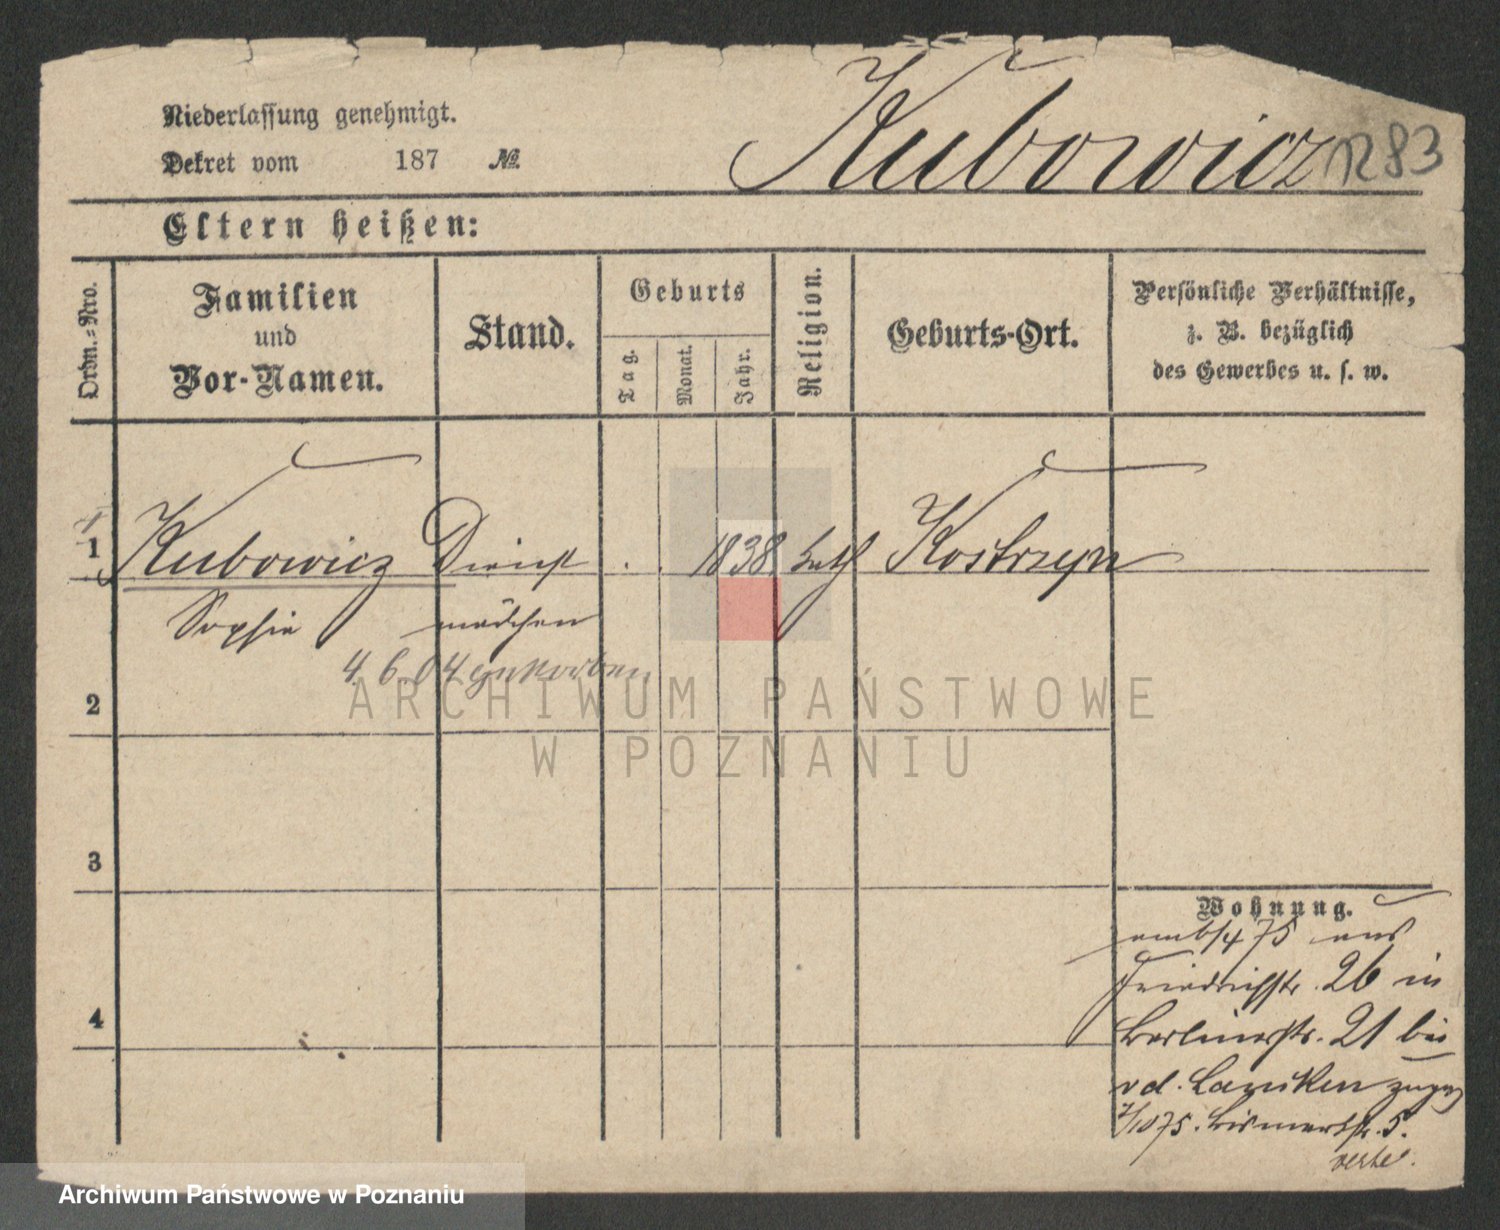 Niederlassung genehmigt.
Dekret vom 187 №
Kubowicz 1283
Eltern heißen:
Ordn.-Nro.
Familien
und
Vor-Namen.
Stand.
Geburts
Tag.
Monat.
Jahr.
Religion.
Geburts-Ort.
Persönliche Verhältnisse,
z. B. bezüglich
des Gewerbes u. s. w.
1 Kubowicz Dienst . . 1838. kath Kostrzyn
Sophie mädchen
4.6.04 gestorben
2
3
4
Wohnung.
am 6/4 75 aus
Friedrichstr. 26 in
Berlinerstr. 21 bei
v d. Lancken
1/10 75. Bismarkstr. 5.
verte.
ARCHIWUM PAŃSTWOWE
W POZNANIU
Archiwum Państwowe w Poznaniu